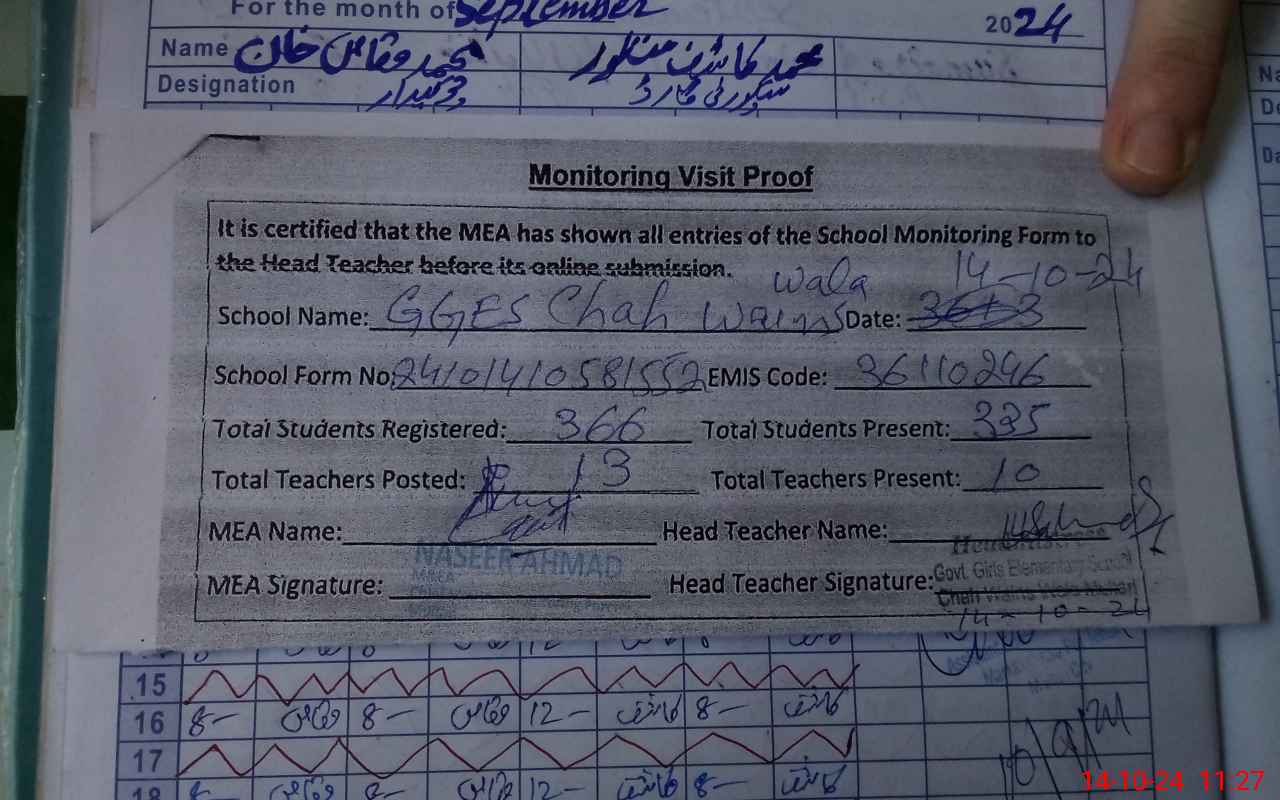 For the month of September 2024
Name محمد وقاص خان محمد کاشف منظور
Designation چوکیدار سیکورٹی گارڈ
Monitoring Visit Proof
It is certified that the MEA has shown all entries of the School Monitoring Form to
the Head Teacher before its online submission.
School Name: GGES Chah Wains Wala Date: 14-10-24
School Form No: 24101410581552 EMIS Code: 36110246
Total Students Registered: 366 Total Students Present: 335
Total Teachers Posted: 13 Total Teachers Present: 10
MEA Name: Head Teacher Name:
NASEER AHMAD
MEA Signature: Head Teacher Signature:
Headmistress
Govt. Girls Elementary School
Chah Wains Wala Multan
14-10-24
15
16 8- وقاص 8- وقاص 12- کاشف 8- کاشف
17
18 8- وقاص 8- وقاص 12- کاشف 8- کاشف
14-10-24 11:27